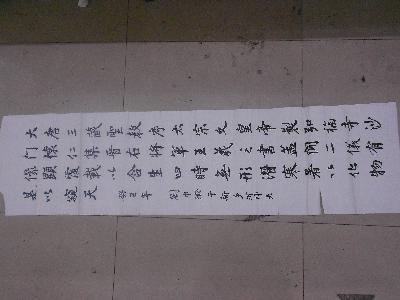 大唐三藏聖教序太宗文皇帝製弘福寺沙
門懷仁集晉右將軍王羲之書蓋聞二儀有
像顯覆載以含生四時無形潛寒暑以化物
是以窺天